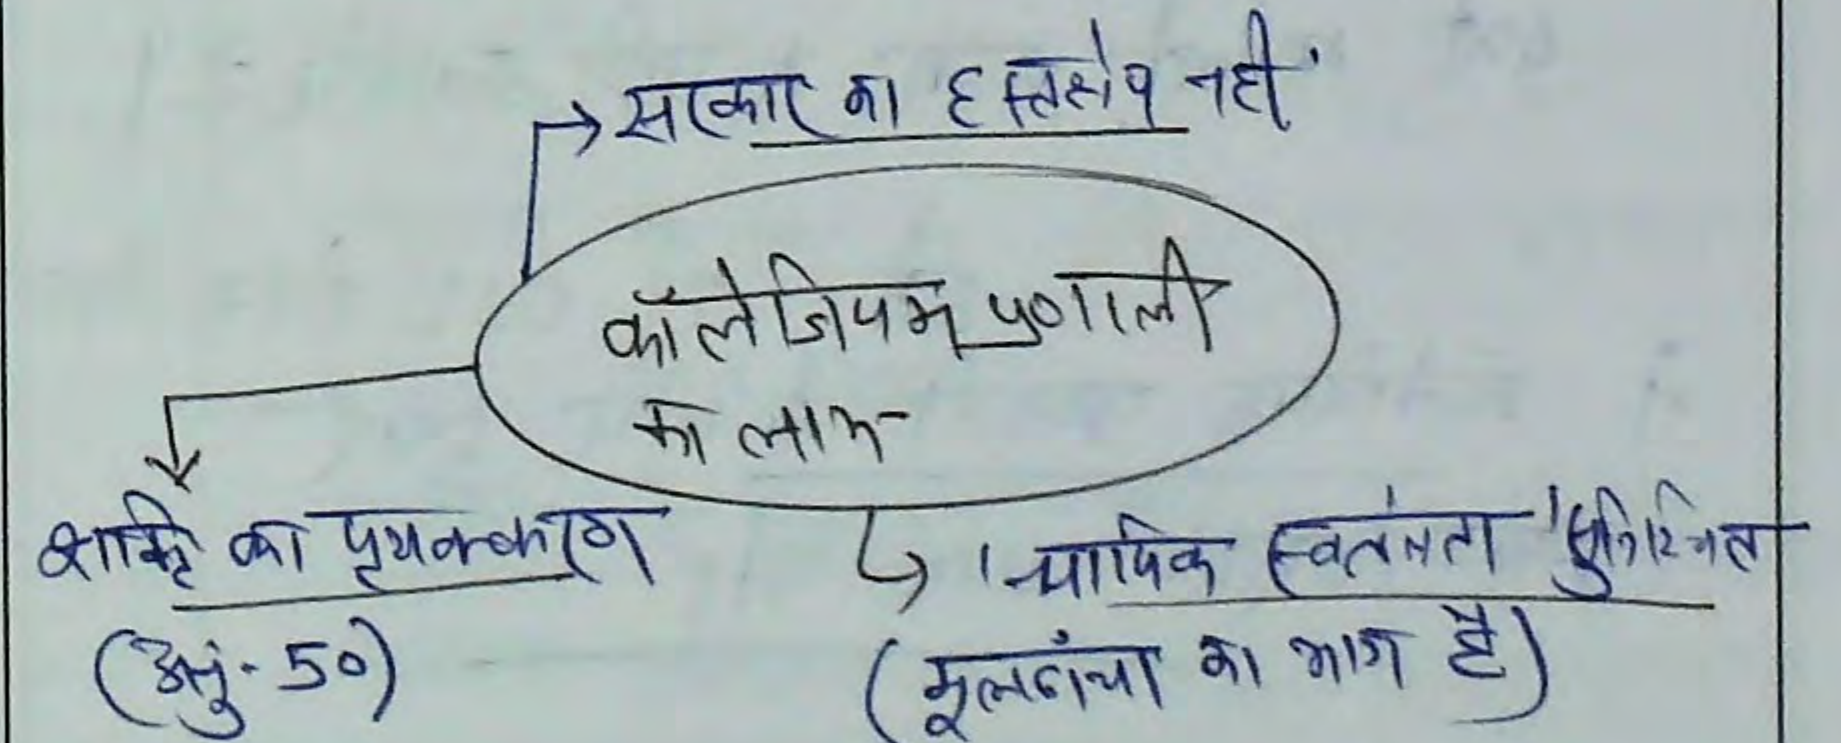 सरकार का हस्तक्षेप नहीं
कॉलेजियम प्रणाली
का लाभ
शक्ति का पृथक्करण
(अनु. 50)
न्यायिक स्वतंत्रता सुनिश्चित
(मूलढांचा का भाग है)